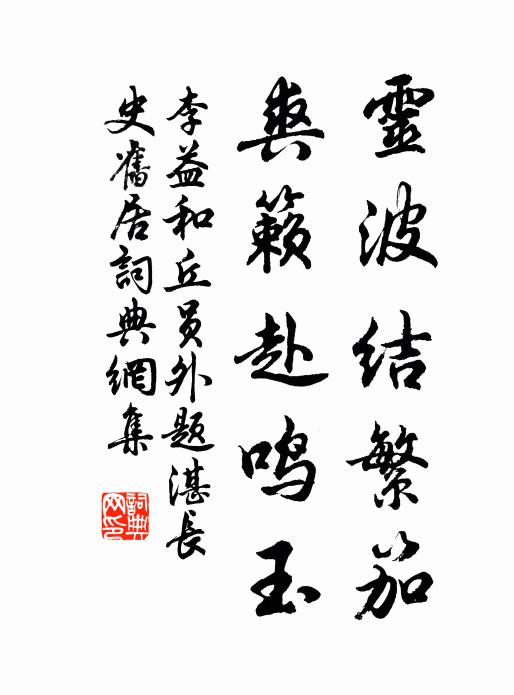 靈波结繁笳
爽籟赴鸣玉
李益和丘员外题湛長
史舊居詞典網集
詞典網印